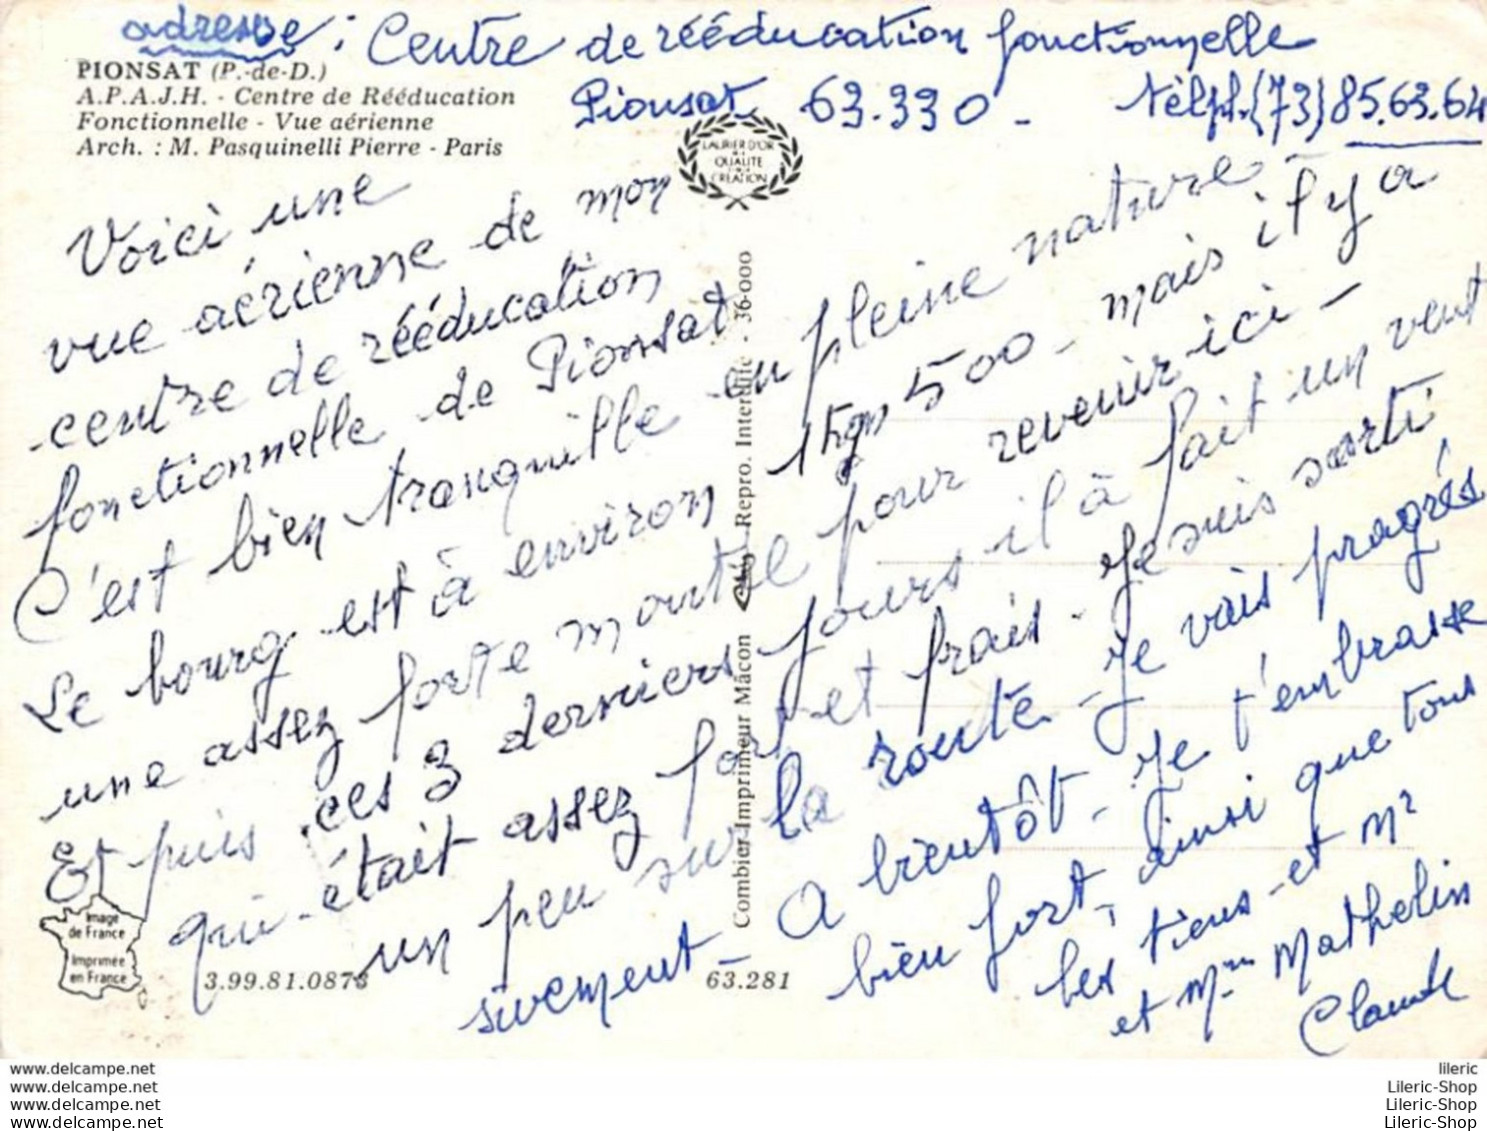 adresse : Centre de rééducation fonctionnelle
Pionsat 63.330 - télph.(73) 85.63.64
PIONSAT (P.-de-D.)
A.P.A.J.H. - Centre de Rééducation
Fonctionnelle - Vue aérienne
Arch. : M. Pasquinelli Pierre - Paris
LAURIER D'OR
DE LA
QUALITÉ
CRÉATION
Voici une
vue aérienne de mon
centre de rééducation
fonctionnelle de Pionsat
C'est bien tranquille en pleine nature -
Le bourg est à environ 500 - mais il y a
une assez forte montée pour revenir ici -
Et puis ces 3 derniers jours il à fait un vent
qui était assez fort et frais - Je suis sorti
un peu sur la route - Je vais progrés
sivement - A bientôt - Je t'embrasse
bien fort, ainsi que tous
les tiens - et Mr
et Mme Mathelin
Claude
Combier Imprimeur Mâcon Repro. Interdite - 36-000
Image
de France
Imprimée
en France
3.99.81.0873
63.281
www.delcampe.net
www.delcampe.net
www.delcampe.net
www.delcampe.net
lileric
Lileric-Shop
Lileric-Shop
Lileric-Shop